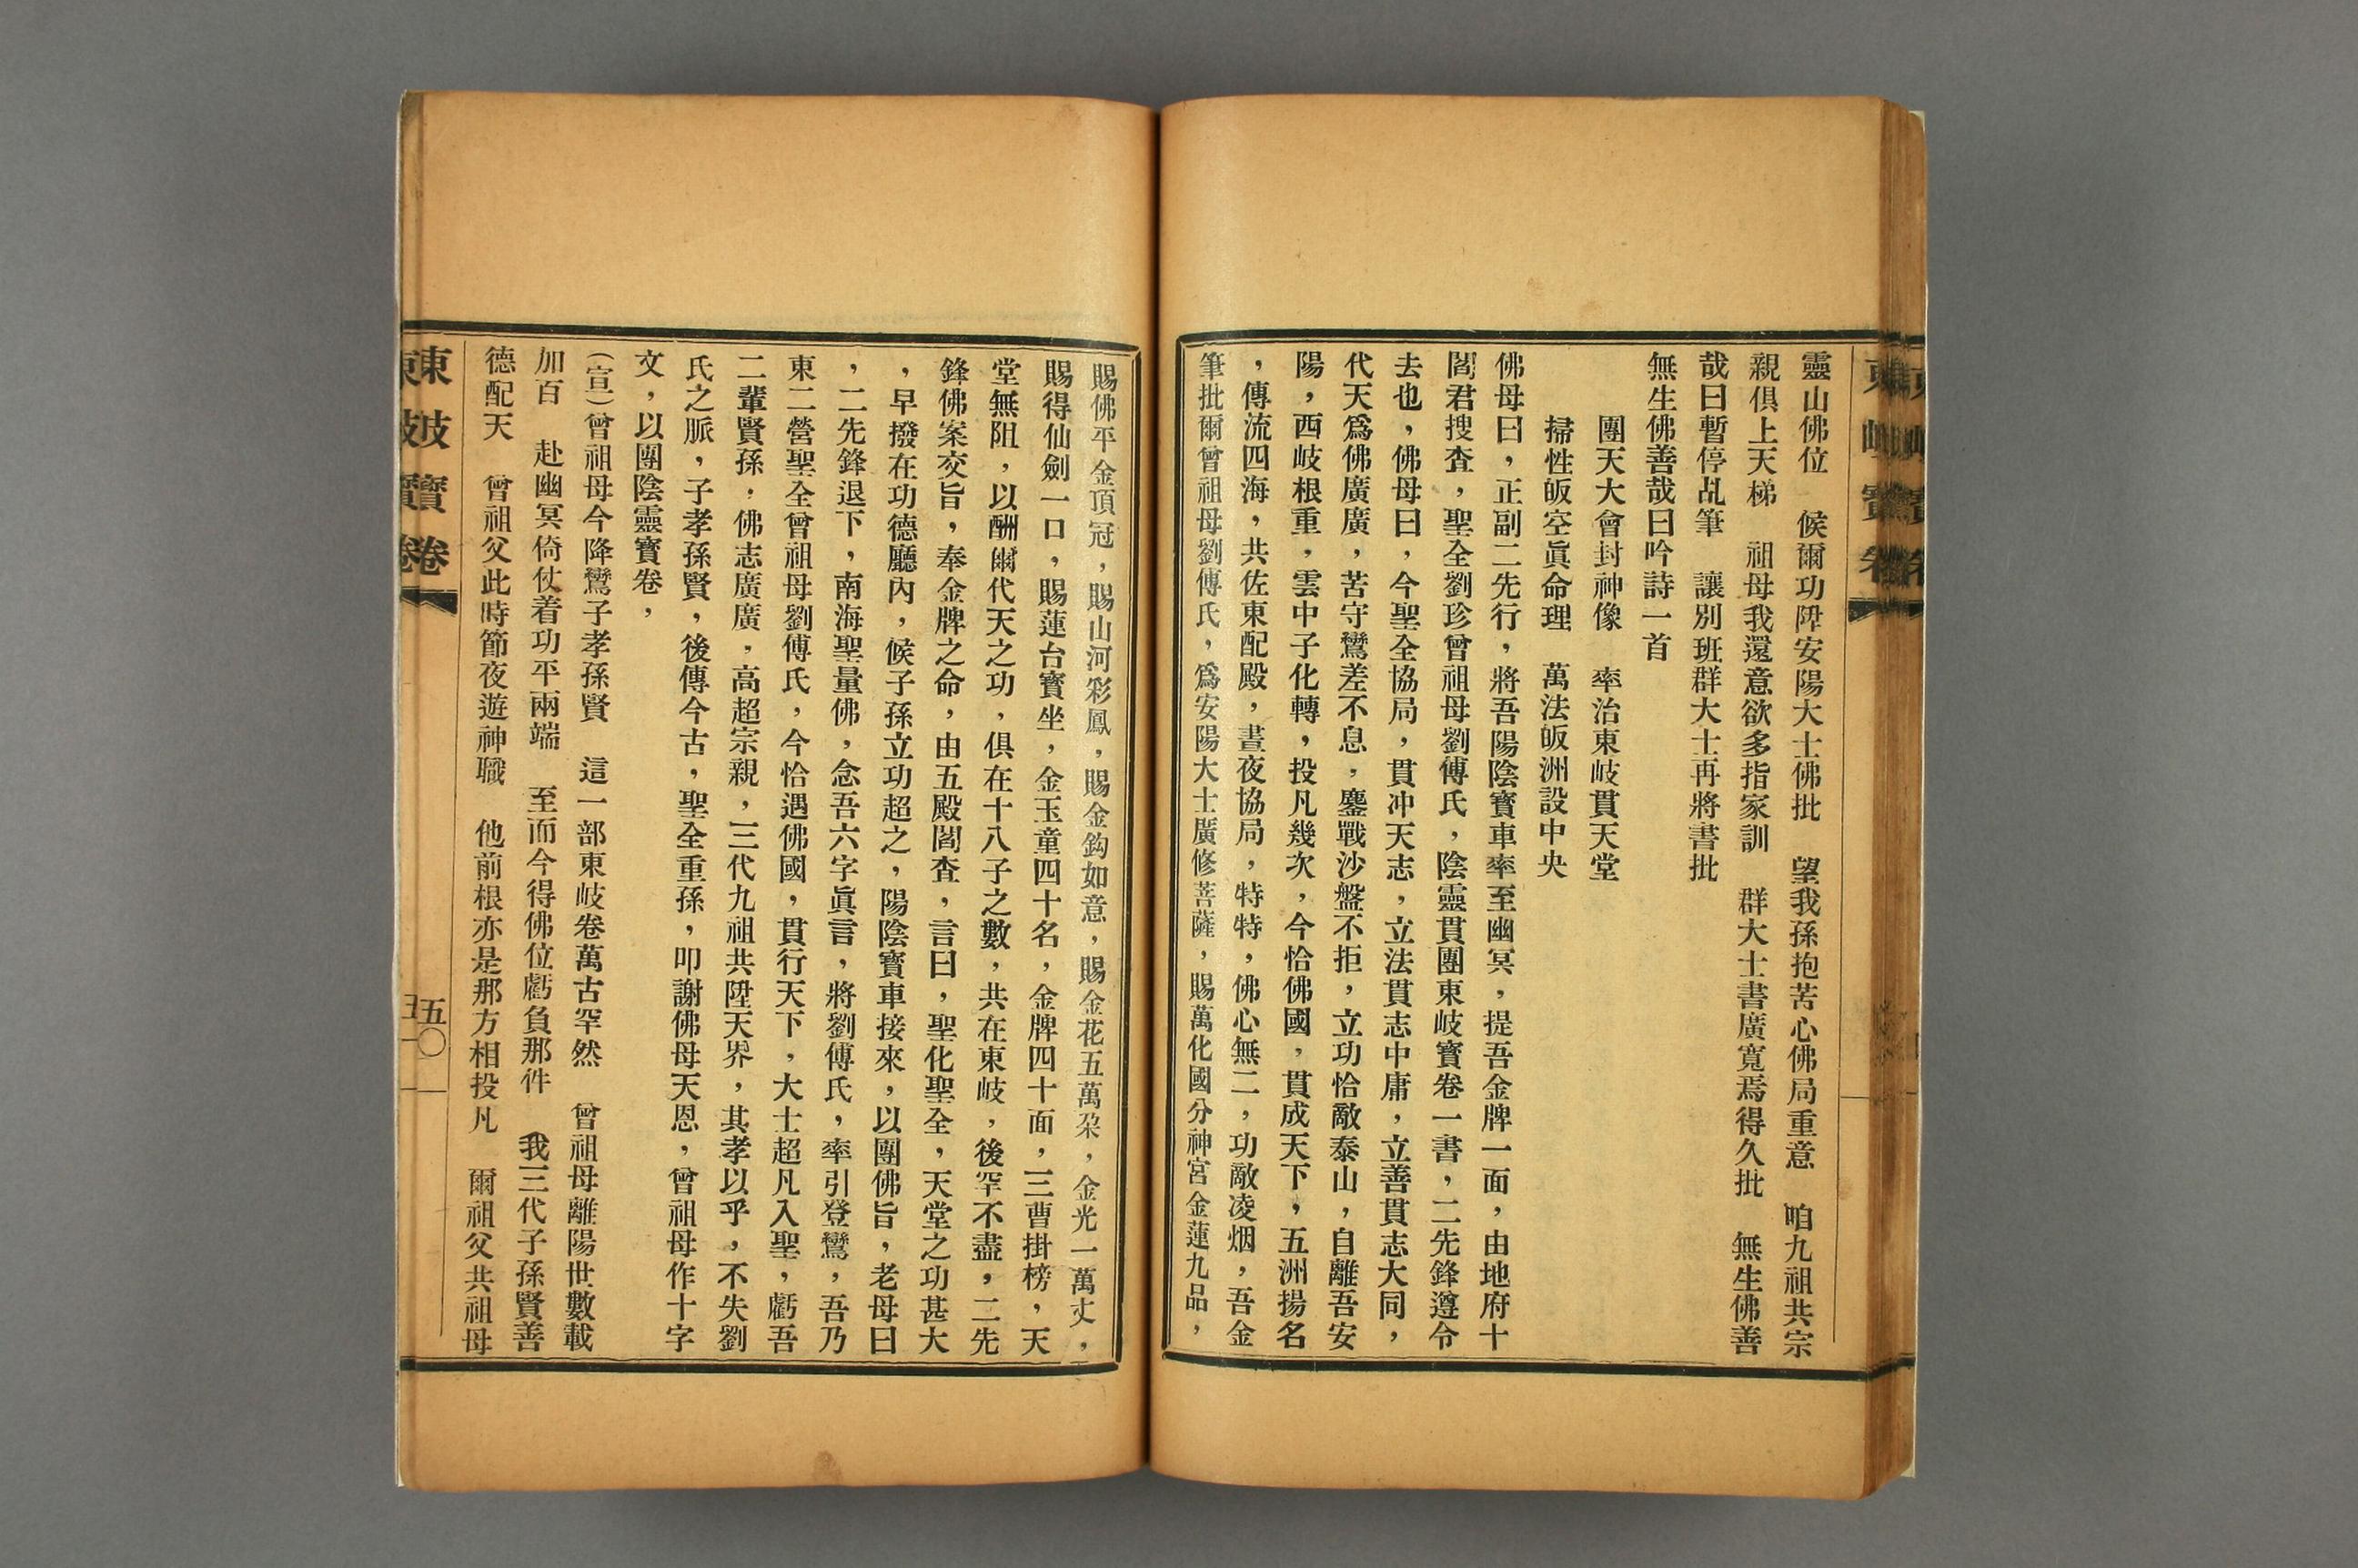 靈山佛位　候爾功陞安陽大士佛批　望我孫抱苦心佛局重意　咱九祖共宗
親俱上天梯　祖母我還意欲多指家訓　群大士書廣寬焉得久批　無生佛善
哉曰暫停乩筆　讓別班群大士再將書批
無生佛善哉曰吟詩一首
團天大會封神像　率治東岐貫天堂
掃性皈空眞命理　萬法皈洲設中央
佛母曰，正副二先行，將吾陽陰寶車率至幽冥，提吾金牌一面，由地府十
閻君搜查，聖全劉珍曾祖母劉傅氏，陰靈貫團東岐寶卷一書，二先鋒遵令
去也，佛母曰，今聖全協局，貫冲天志，立法貫志中庸，立善貫志大同，
代天爲佛廣廣，苦守鸞差不息，鏖戰沙盤不拒，立功恰敵泰山，自離吾安
陽，西岐根重，雲中子化轉，投凡幾次，今恰佛國，貫成天下，五洲揚名
，傳流四海，共佐東配殿，晝夜協局，特特，佛心無二，功敵凌烟，吾金
筆批爾曾祖母劉傅氏，爲安陽大士廣修菩薩，賜萬化國分神宮金蓮九品，
賜佛平金頂冠，賜山河彩鳳，賜金鈎如意，賜金花五萬朶，金光一萬丈，
賜得仙劍一口，賜蓮台寶坐，金玉童四十名，金牌四十面，三曹掛榜，天
堂無阻，以酬爾代天之功，俱在十八子之數，共在東岐，後罕不盡，二先
鋒佛案交旨，奉金牌之命，由五殿閻查，言曰，聖化聖全，天堂之功甚大
，早撥在功德廳內，候子孫立功超之，陽陰寶車接來，以團佛旨，老母曰
，二先鋒退下，南海聖量佛，念吾六字眞言，將劉傅氏，率引登鸞，吾乃
東二營聖全曾祖母劉傅氏，今恰遇佛國，貫行天下，大士超凡入聖，虧吾
二輩賢孫，佛志廣廣，高超宗親，三代九祖共陞天界，其孝以乎，不失劉
氏之脈，子孝孫賢，後傳今古，聖全重孫，叩謝佛母天恩，曾祖母作十字
文，以團陰靈寶卷，
（宣）曾祖母今降鸞子孝孫賢　這一部東岐卷萬古罕然　曾祖母離陽世數載
加百　赴幽冥倚仗着功平兩端　至而今得佛位虧負那件　我三代子孫賢善
德配天　曾祖父此時節夜遊神職　他前根亦是那方相投凡　爾祖父共祖母
東岐寶卷
五〇